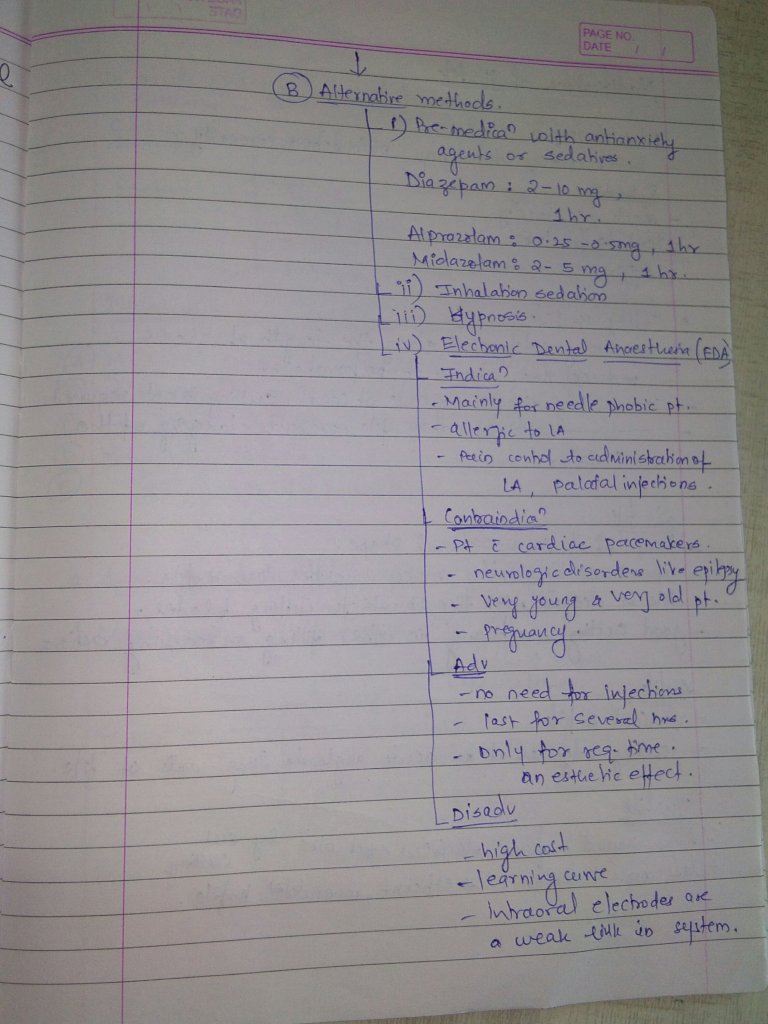 PAGE NO.
DATE / /
Ⓑ Alternative methods.
i) Pre-medicaⁿ with antianxiety
agents or sedatives.
Diazepam : 2-10 mg,
1 hr.
Alprazolam : 0.25 -0.5mg, 1hr
Midazolam : 2- 5 mg, 1 hr.
ii) Inhalation sedation
iii) Hypnosis.
iv) Electronic Dental Anaesthesia (EDA)
Indicaⁿ
- Mainly for needle phobic pt.
- allergic to LA
- Pain control to administration of
LA, palatal injections.
Contraindicaⁿ
- Pt c̄ cardiac pacemakers.
- neurologic disorders like epilepsy
- very young & very old pt.
- pregnancy.
Adv
- no need for injections
- last for several hrs.
- only for req. time.
anesthetic effect.
Disadv
- high cost
- learning curve
- Intraoral electrodes are
a weak link in system.